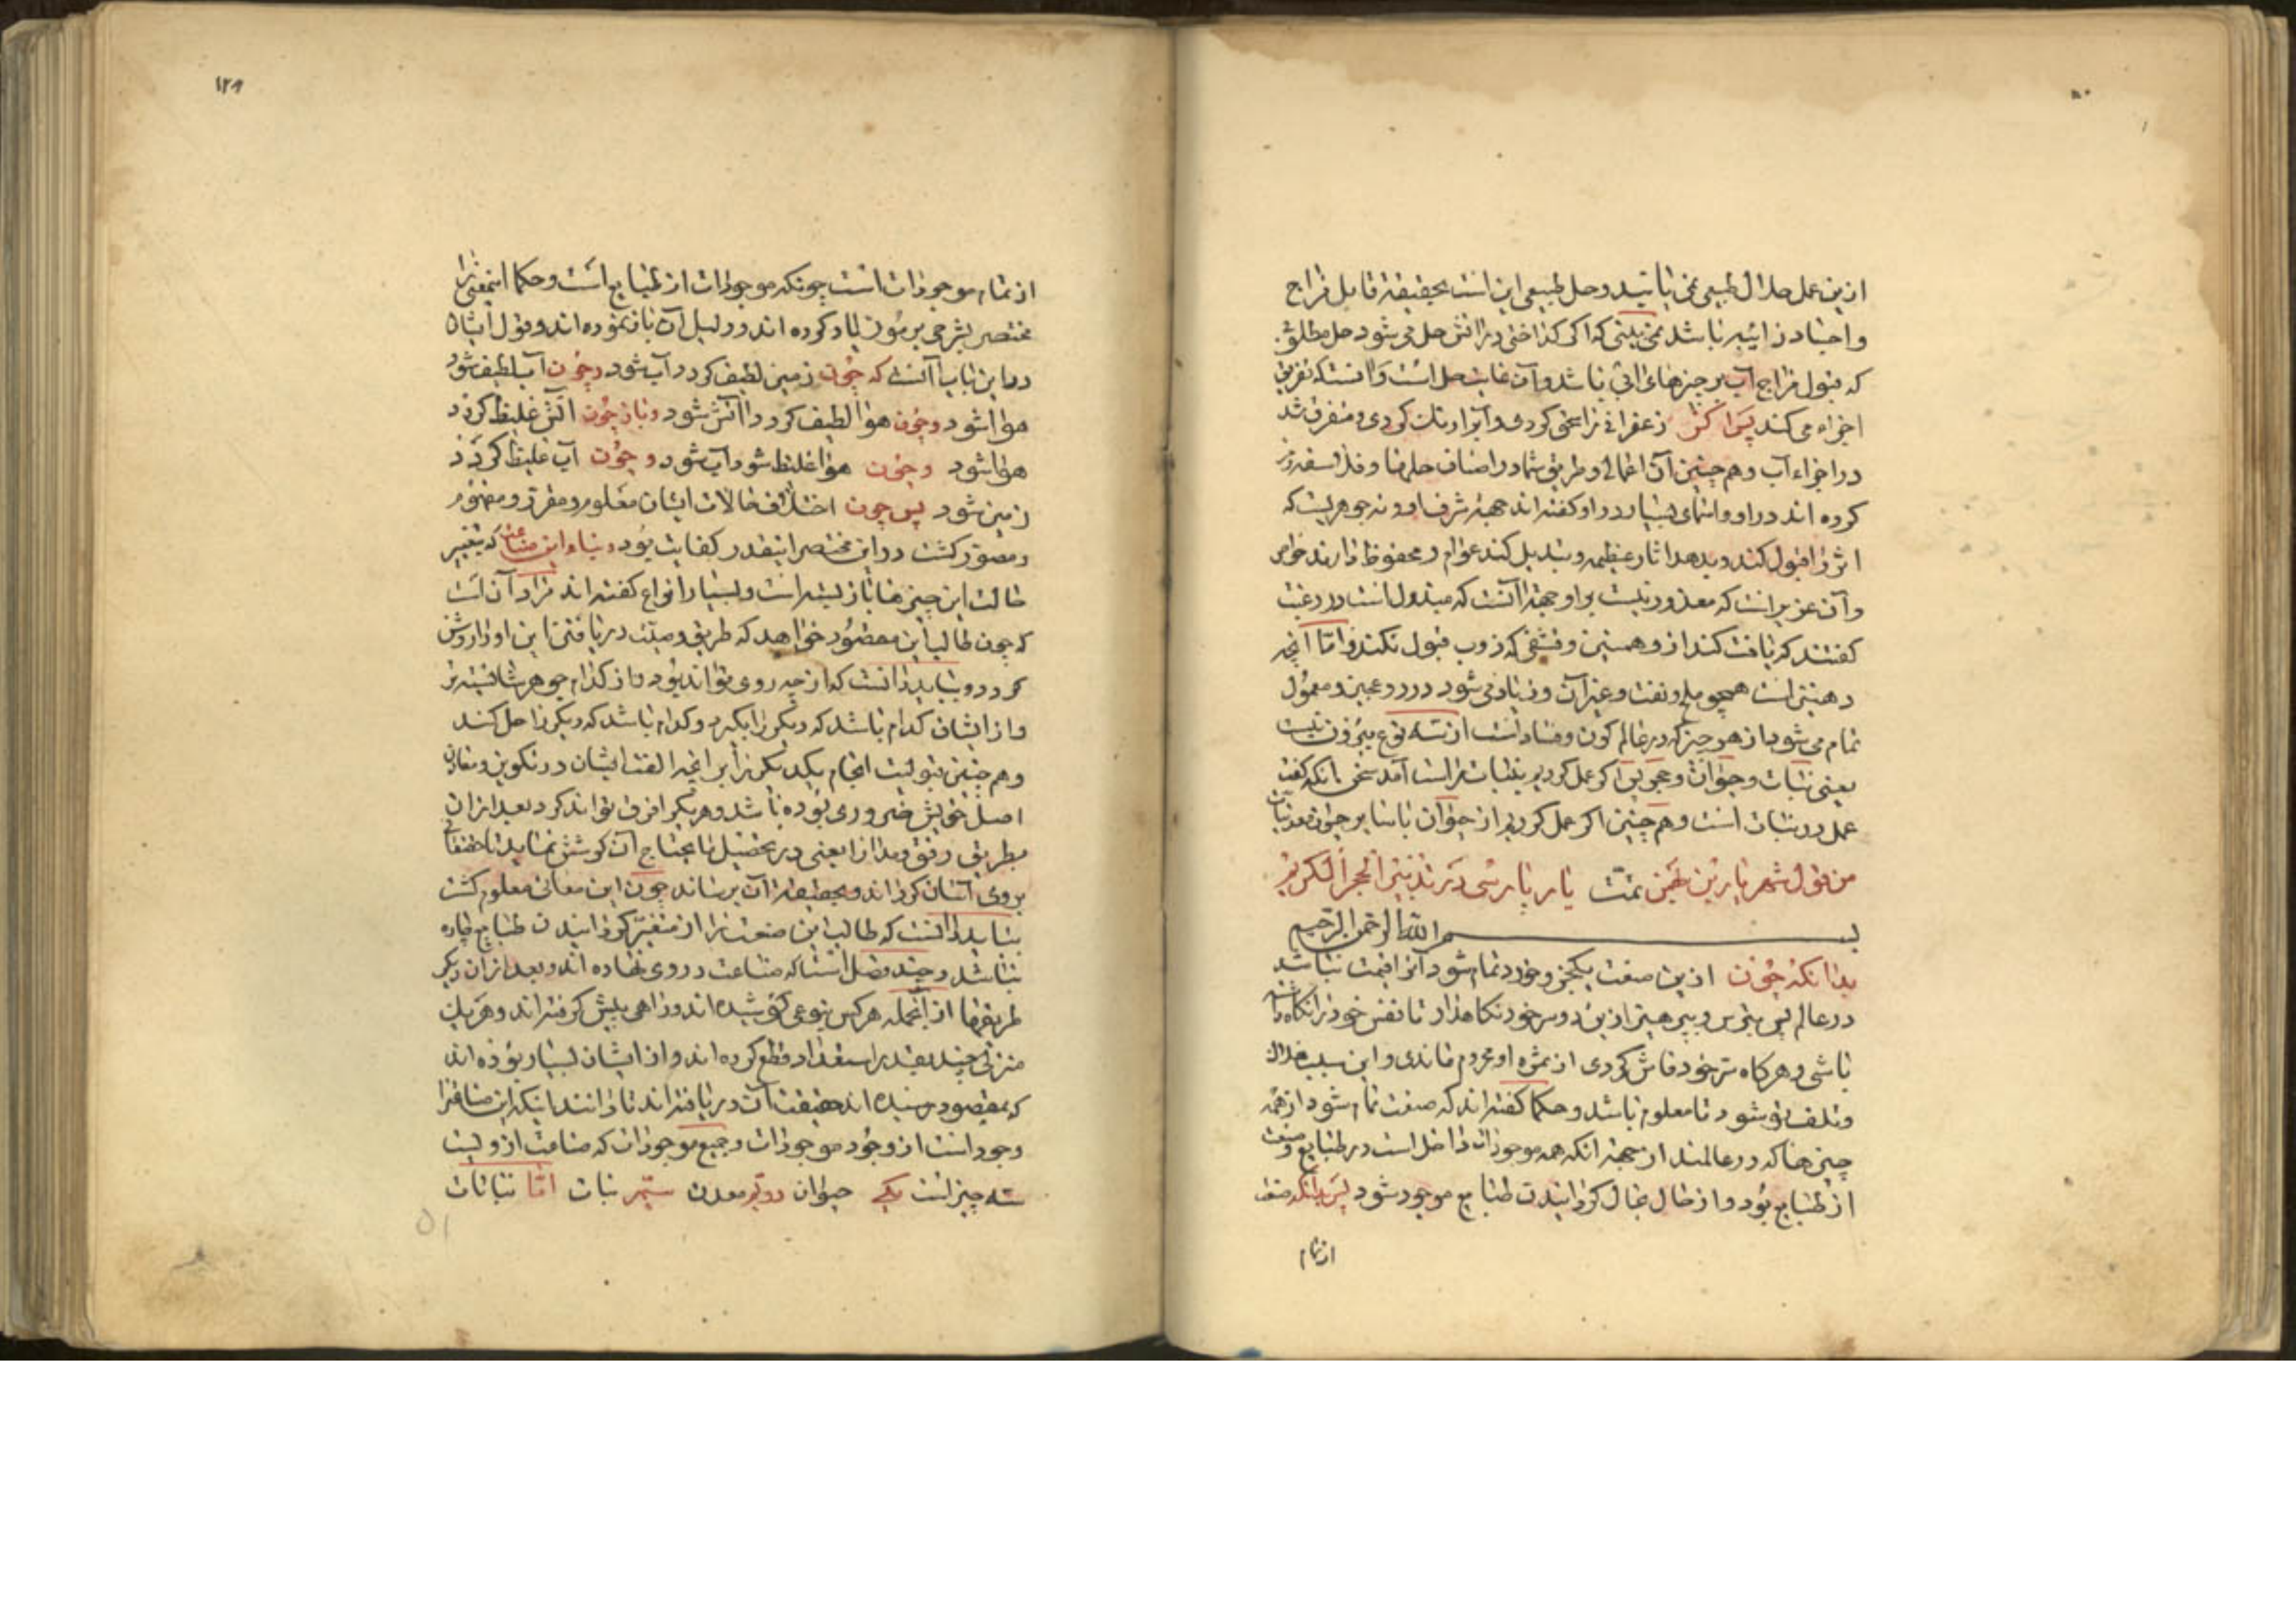 ازین عمل حلال طبیعی می‌باشد و حل طبیعی این است بحقیقة قابل مزاج
و اجساد ذائبه باشد نمی‌بینی که اگر کداختی در آتش حل می شود حل مطلق
که قبول مزاج آب بر چیزهای باشد و آن غایت حل است و آنست که تفریق
اجزاء می کند پس اگر زعفرانی را سحق کردی و آنرا در کردی و متفرق شد
در اجزاء آب و هم چنین آن اعمال و طریق شما در اصناف حلها و فلاسفه رمز
کرده اند در او و اسمای بسیار در او کفته اند جهة شرف او و نه جوهریست که
اثر را قبول کند و بدهد اثار عظیمه و تبدیل کند عوام و محفوظ دارند خواص
و آن عزیر است که معذور نیست بر او جهة آنست که مبذول است در رغبت
کفتند که یافت کند از و همسین و قشفی که ذوب قبول نکند و اما انچه
دهنیتی است همچو ملح و نفت و غیر آن و زیاد می شود در دو عجین و معمول
تمام می شود از هر چیز که در عالم کون و فساد است از سه نوع بیرون نیست
یعنی نبات و حیوان و حجر پس اکر عمل کردیم بنبات راست آمد سخن انکه کفت
عمل در نبات است و هم چنین اکر عمل کردیم از حیوان یا سایر حیوان معدنیات
من قول شهریار بن بهمن تمّت یار پارسی در تدبیر الحجر الکریم
بسم الله الرحمن الرحیم
بدانکه چون ازین صنعت یکجزو خورد تمام شود آنرا قیمت نباشد
در عالم پس بترس و بپرهیز ازین دو سر خود نکاهدار تا نفس خود را نکاه داشته
باشی و هرکاه سر خود فاش کردی از ثمره او محروم ماندی و این سبب هلاک
و تلف تو شود تا معلوم باشد و حکما کفته اند که صنعت تمام شود از همه
چیزها که در عالمند از جهة انکه همه موجودات داخل است در طبایع و صنعت
از طبایع بود و از حال بحال کردانیدن طبایع موجود شود پس بدانکه صنعت
از تمام
۱۲۱
از تمام موجودات است چونکه موجودات از طبایع است و حکما اینمعنی را
مختصر بشرحی بیرمون یاد کرده اند و دلیل آن باز نموده اند و قول ایشان
در این باب آنست که چون زمین لطیف کردد آب شود و چون آب لطیف شود
هوا شود و چون هوا لطیف کردد آتش شود و باز چون آتش غلیظ کردد
هوا شود و چون هوا غلیظ شود آب شود و چون آب غلیظ کردد
زمین شود پس چون اختلاف حالات ایشان معلوم و مقرر و مفهوم
و مصوّر کشت در این مختصر اینقدر کفایت بود و بناء این صناعت که تغییر
حالت این چیزها باز بسته است و بسیار انواع کفته اند مراد آن است
که چون طالب این مقصود خواهد که طریق و میّت دریافتن این او را روشن
کردد و بباید دانست که از چه روی تواند بود و از کدام جوهر شایسته تر
و از ایشان کدام باشد که دیکر را بکیرد و کدام باشد که دیکر را حل کند
و هم چنین قبولیت انجام یکدیکر را براغیه الفت ایشان در تکوین و مقارن
اصل خویش ضروری بوده باشد و هر یکی را فرق تواند کرد بعد ازان
بطریق رفق و مدارا یعنی در تحصیل مایحتاج آن کوشش نماید تا حقتعالی
بر وی آسان کرداند و بحقیقة آن برساند چون این معانی معلوم کشت
بباید دانست که طالب این صنعت را از متغیّر کردانیدن طبایع چاره
نباشد و چند فصل است که صناعت در وی نهاده اند و بعد ازان دیکر
طریقها از آنجمله هر کس بنوعی کوشیده اند و راهی پیش کرفته اند و هر یک
منزلی چند بقدر استعداد قطع کرده اند و از ایشان بسیار بوده اند
که بمقصود رسیده اند حقیقت آن دریافته اند تا دانند اینکه این صنایع را
وجود است از وجود موجودات و جمیع موجودات که صناعت از ویست
سه چیز است یکی حیوان دویّم معدن سیّم نبات امّا نباتات
۵۱